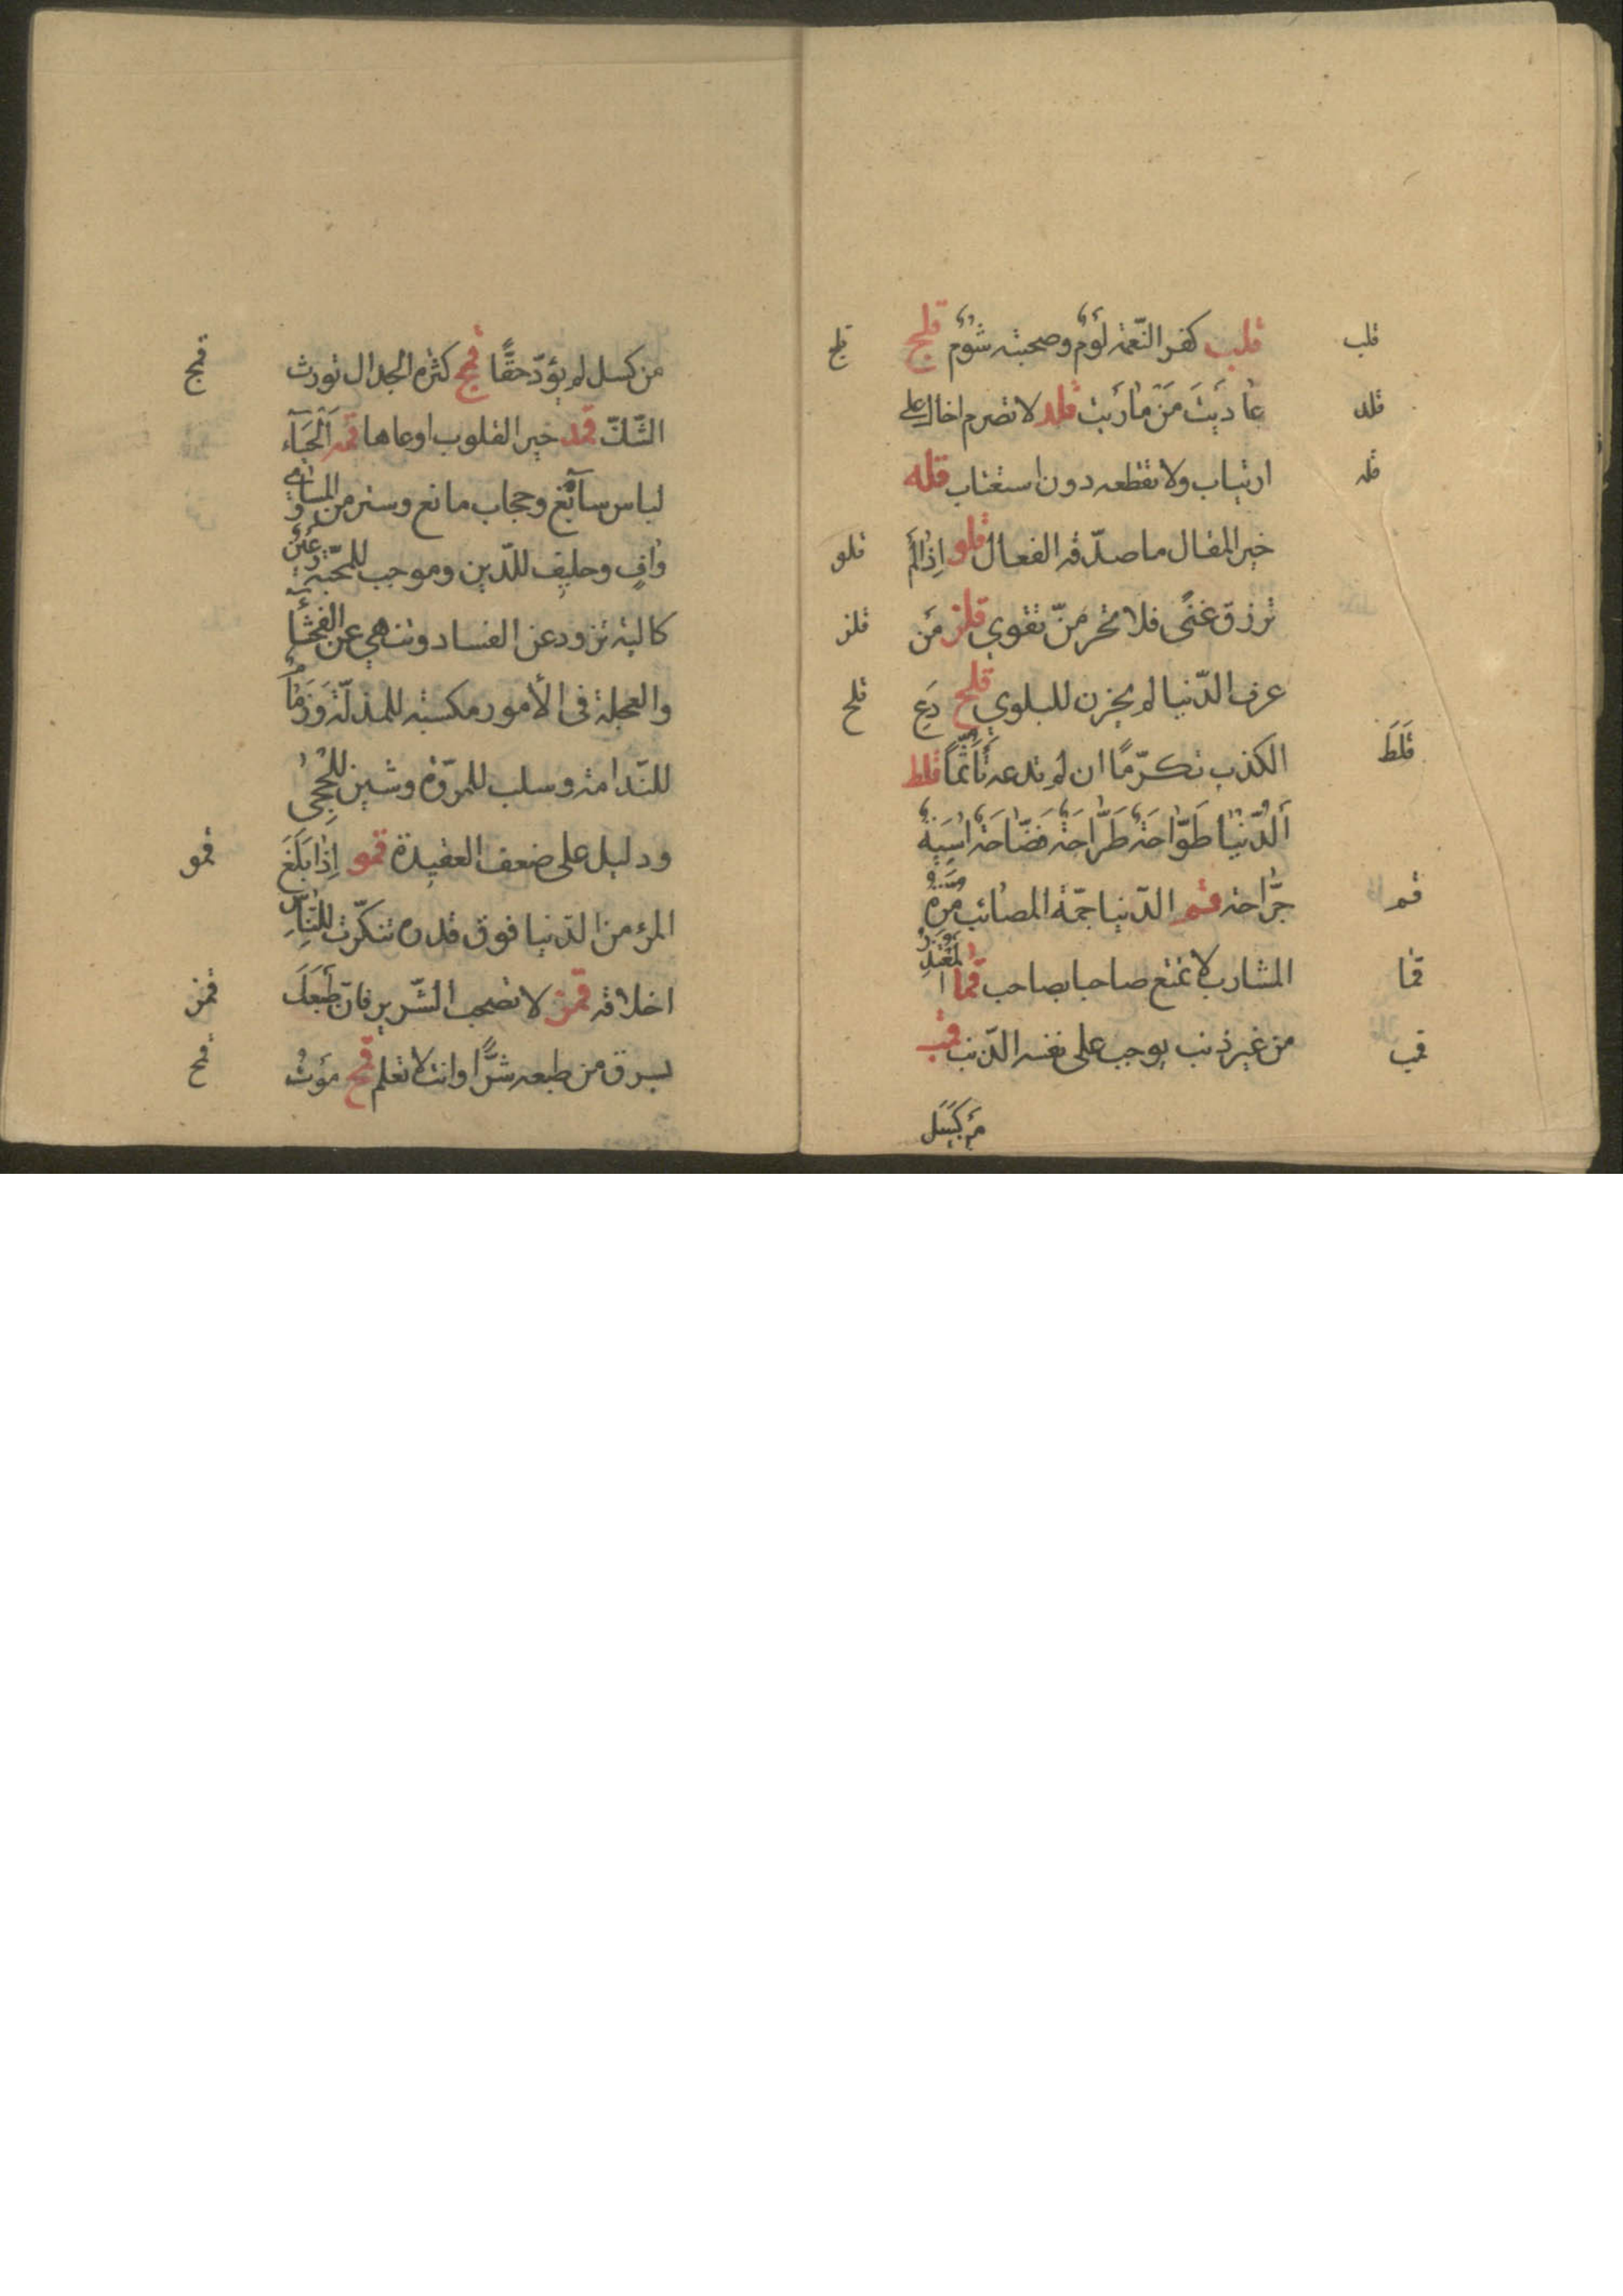 قلب كفر النّعمة لُؤمٌ وصحبته شُومٌ قلج
قلب
قلج
عادَيتَ مَن مارَيت قلد لا تصرم اخاك على
قلد
ارتياب ولا تقطعه دون استعتاب قله
قله
خير المقال ما صدّقه الفعال قلو اِذا لَم
قلو
ترزق غنًى فلا تحرمنّ تقوي قلز مَن
قلز
عرف الدّنيا لم يحزن للبلوي قلح دَعِ
قلح
الكذب تكرّمًا ان لم تدعه تأثّمًا قلط
قلَط
اَلدّنيا طَوّاحَةٌ طَرّاحَةٌ فضّاحَةٌ اسِيَةٌ
جرّاحة قم الدّنيا جمّة المصائب مُرّةُ
قم
المشارب لا تمتع صاحبا بصاحب قما المُعتَذِرُ
قما
من غير ذنب يوجب على نفسه الذّنب قمب
قمب
مَن كَسَل
من كسل لم يؤدّ حقًّا قمج كثرة الجدال تورث
قمج
الشّكّ قمد خير القلوب اوعاها قمه اَلحَيَاء
لباس سابغ وحجاب مانع وستر من المساوِي
وافٍ وحليف للدّين وموجب للمحبّة وعَينٌ
كالية تزود عن الفساد وتنهي عن الفحشآ
والعجلة في الأمور مكسبة للمذلّة وَزمامٌ
للنّدامة وسلب للمروّة وشين للحِجى
ودليل على ضعف العقيدة قمو اِذا بَلَغَ
قمو
المرؤ من الدّنيا فوق قدره تنكّرت للنّاسِ
اخلاقه قمز لا تصحب الشّرير فانّ طَبعَكَ
قمز
يسرق من طبعه شرًّا وانت لا تعلم قمح مَوتُ
قمح